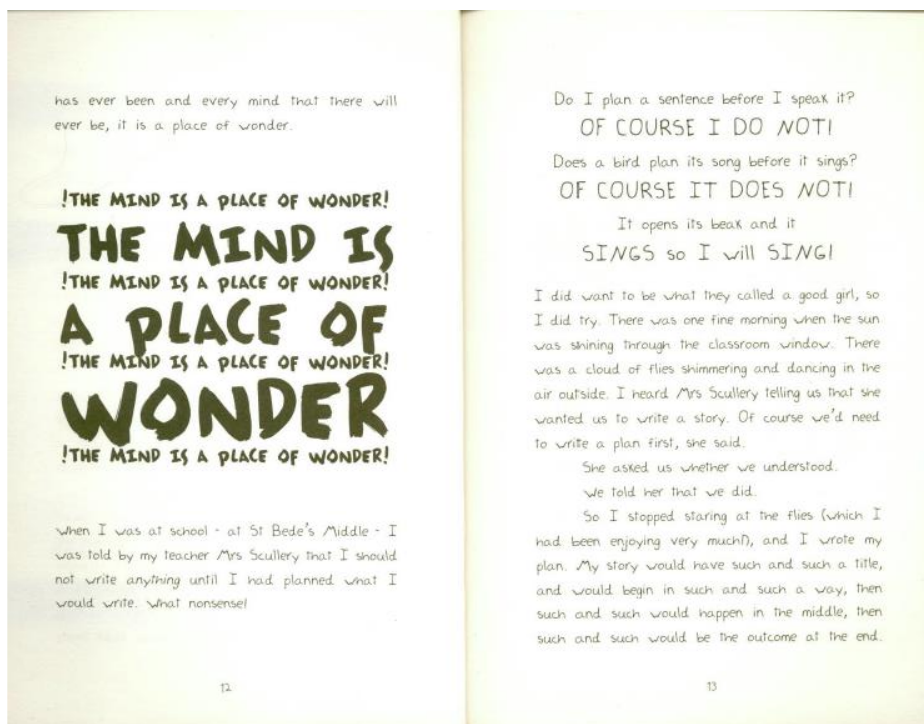 has ever been and every mind that there will
ever be, it is a place of wonder.
!THE MIND IS A PLACE OF WONDER!
THE MIND IS
!THE MIND IS A PLACE OF WONDER!
A PLACE OF
!THE MIND IS A PLACE OF WONDER!
WONDER
!THE MIND IS A PLACE OF WONDER!
When I was at school - at St Bede's Middle - I
was told by my teacher Mrs Scullery that I should
not write anything until I had planned what I
would write. What nonsense!
12
Do I plan a sentence before I speak it?
OF COURSE I DO NOT!
Does a bird plan its song before it sings?
OF COURSE IT DOES NOT!
It opens its beak and it
SINGS so I will SING!
I did want to be what they called a good girl, so
I did try. There was one fine morning when the sun
was shining through the classroom window. There
was a cloud of flies shimmering and dancing in the
air outside. I heard Mrs Scullery telling us that she
wanted us to write a story. Of course we'd need
to write a plan first, she said.
She asked us whether we understood.
We told her that we did.
So I stopped staring at the flies (which I
had been enjoying very much!), and I wrote my
plan. My story would have such and such a title,
and would begin in such and such a way, then
such and such would happen in the middle, then
such and such would be the outcome at the end.
13